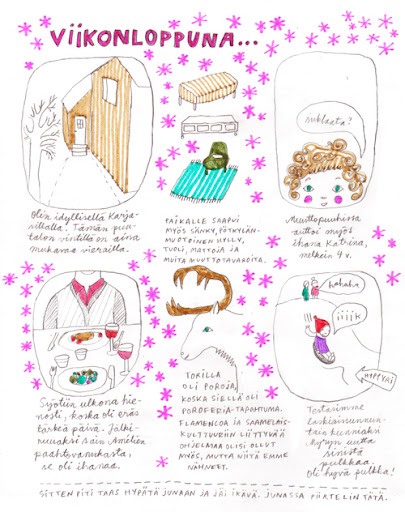 VIIKONLOPPUNA...
Olin idyllisellä Karja-
sillalla. Tämän puu-
talon vintillä on aina
mukavaa vierailla.
PAIKALLE SAAPUI
MYÖS SÄNKY, PÖTKYLÄN-
MUOTOINEN HYLLY,
TUOLI, MATTOJA JA
MUITA MUUTTOTAVAROITA.
suklaata?
Muuttopuuhissa
auttoi myös
ihana Katrina,
melkein 4 v.
Syötiin ulkona hie-
nosti, koska oli eräs
tärkeä päivä. Jälki-
ruuaksi sain Amélien
paahtovanukasta,
se oli ihanaa.
TORILLA
OLI POROJA,
KOSKA SIELLÄ OLI
POROFERIA-TAPAHTUMA.
FLAMENCOA JA SAAMELAIS-
KULTTUURIIN LIITTYVÄÄ
OHJELMAA OLISI OLLUT
MYÖS, MUTTA NIITÄ EMME
NÄHNEET.
hahaha
iiiik
HYPPYRI
Testasimme
laskiaissunnun-
tain kunniaksi
uutta
sinistä
pulkkaa.
Oli hyvä pulkka!
SITTEN PITI TAAS HYPÄTÄ JUNAAN JA JÄI IKÄVÄ. JUNASSA PIIRTELIN TÄTÄ.